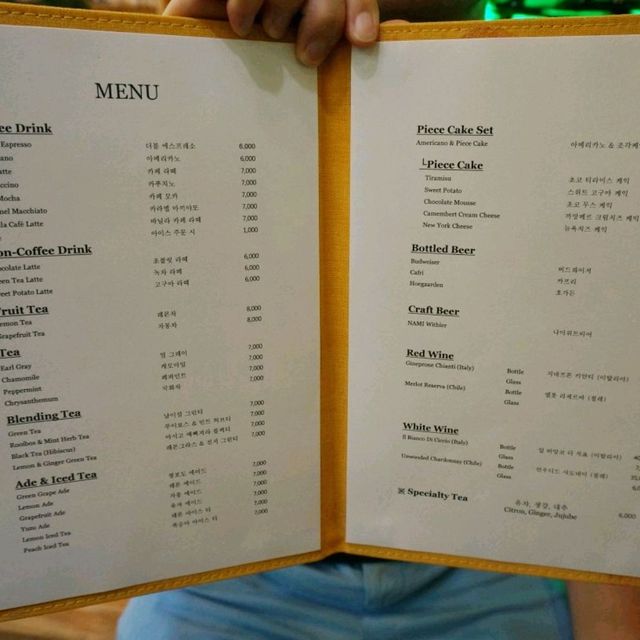 MENU
ee Drink
Espresso 더블 에스프레소 6,000
ano 아메리카노 6,000
atte 카페 라떼 7,000
ccino 카푸치노 7,000
Mocha 카페 모카 7,000
mel Macchiato 카라멜 마끼아또 7,000
lla Café Latte 바닐라 카페 라떼 7,000
아이스 주문 시 1,000
on-Coffee Drink
ocolate Latte 초콜릿 라떼 6,000
een Tea Latte 녹차 라떼 6,000
eet Potato Latte 고구마 라떼 6,000
ruit Tea
emon Tea 레몬차 8,000
rapefruit Tea 자몽차 8,000
Tea
Earl Gray 얼 그레이 7,000
Chamomile 캐모마일 7,000
Peppermint 페퍼민트 7,000
Chrysanthemum 국화차 7,000
Blending Tea
Green Tea 그린티 7,000
Rooibos & Mint Herb Tea 루이보스 & 민트 허브티 7,000
Black Tea (Hibiscus) 7,000
Lemon & Ginger Green Tea 레몬그라스 & 진저 그린티 7,000
Ade & Iced Tea
Green Grape Ade 청포도 에이드 7,000
Lemon Ade 레몬 에이드 7,000
Grapefruit Ade 자몽 에이드 7,000
Yuzu Ade 유자 에이드 7,000
Lemon Iced Tea 레몬 아이스 티 7,000
Peach Iced Tea 복숭아 아이스 티 7,000
Piece Cake Set
Americano & Piece Cake 아메리카노 & 조각케
└Piece Cake
Tiramisu 초코 티라미스 케익
Sweet Potato 스위트 고구마 케익
Chocolate Mousse 초코 무스 케익
Camembert Cream Cheese 까망베르 크림치즈 케익
New York Cheese 뉴욕치즈 케익
Bottled Beer
Budweiser 버드와이저
Cafri 카프리
Hoegaarden 호가든
Craft Beer
NAMJ Withier 나미위트비어
Red Wine
Gineprone Chianti (Italy) Bottle 지네프론 끼안티 (이탈리아)
Glass
Merlot Reserva (Chile) Bottle 멜롯 리제르바 (칠레)
Glass
White Wine
Il Bianco Di Ciccio (Italy) Bottle 일 비앙코 디 치쵸 (이탈리아)
Glass
Unwooded Chardonnay (Chile) Bottle 언우디드 샤도네이 (칠레)
Glass
※ Specialty Tea 유자, 생강, 대추
Citron, Ginger, Jujube 6,000